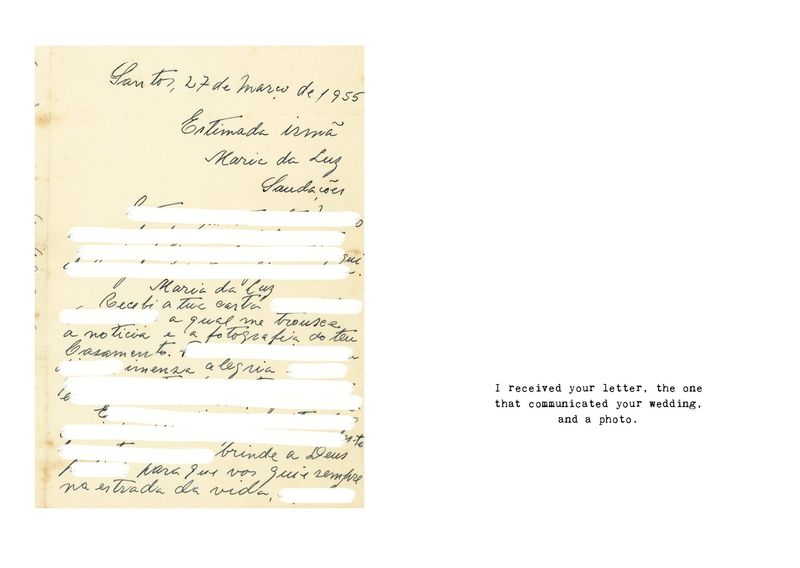 Santos, 27 de Março de 1955
Estimada irmã
Maria da Luz
Saudações
Maria da Luz
Recebi a tua carta
a qual me trousce
a noticia e a fotografia do teu
Casamento.
imenza alegria
brinde a Deus
para que vos guie sempre
na estrada da vida,
I received your letter, the one
that communicated your wedding,
and a photo.